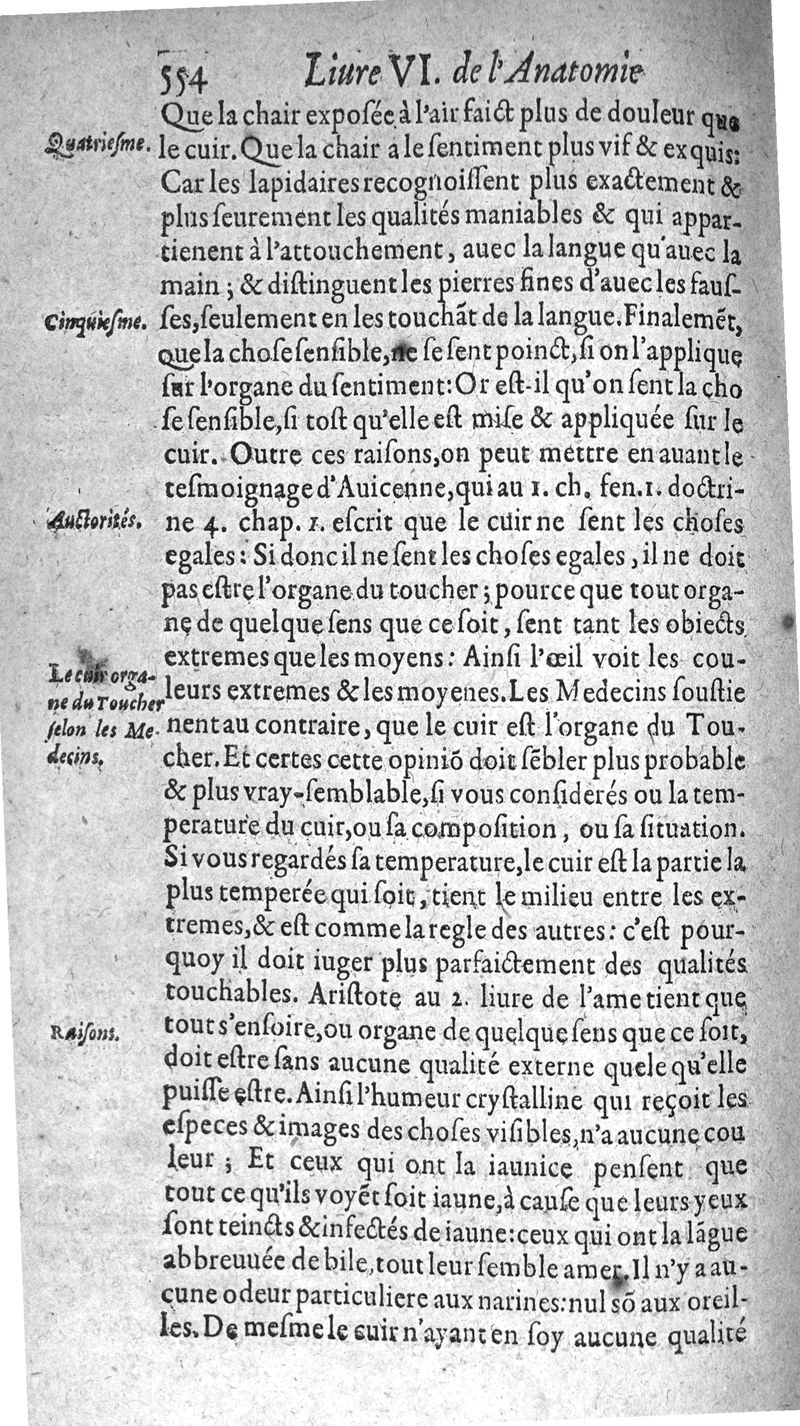 554 Liure VI. de l'Anatomie
Que la chair exposée à l'air faict plus de douleur que
Quatriesme.
le cuir. Que la chair a le sentiment plus vif & exquis:
Car les lapidaires recognoissent plus exactement &
plus seurement les qualités maniables & qui appar-
tienent à l'attouchement, auec la langue qu'auec la
main ; & distinguent les pierres fines d'auec les faus-
Cinquiesme.
ses, seulement en les touchãt de la langue. Finalemẽt,
que la chose sensible, ne se sent poinct, si on l'applique
sur l'organe du sentiment: Or est-il qu'on sent la cho
se sensible, si tost qu'elle est mise & appliquée sur le
cuir. Outre ces raisons, on peut mettre en auant le
tesmoignage d'Auicenne, qui au 1. ch. fen. 1. doctri-
Auctorités.
ne 4. chap. 1. escrit que le cuir ne sent les choses
egales: Si donc il ne sent les choses egales, il ne doit
pas estre l'organe du toucher ; pource que tout orga-
ne de quelque sens que ce soit, sent tant les obiects
extremes que les moyens: Ainsi l'œil voit les cou-
Le cuir orga-
ne du Toucher
selon les Me-
decins.
leurs extremes & les moyenes. Les Medecins soustie
nent au contraire, que le cuir est l'organe du Tou-
cher. Et certes cette opiniõ doit sẽbler plus probable
& plus vray-semblable, si vous considerés ou la tem-
perature du cuir, ou sa composition, ou sa situation.
Si vous regardés sa temperature, le cuir est la partie la
plus temperée qui soit, tient le milieu entre les ex-
tremes, & est comme la regle des autres: c'est pour-
quoy il doit iuger plus parfaictement des qualités
touchables. Aristote au 2. liure de l'ame tient que
Raisons.
tout s'ensoire, ou organe de quelque sens que ce soit,
doit estre sans aucune qualité externe quele qu'elle
puisse estre. Ainsi l'humeur crystalline qui reçoit les
especes & images des choses visibles, n'a aucune cou
leur ; Et ceux qui ont la iaunice pensent que
tout ce qu'ils voyẽt soit iaune, à cause que leurs yeux
sont teincts & infectés de iaune: ceux qui ont la lãgue
abbreuuée de bile, tout leur semble amer. Il n'y a au-
cune odeur particuliere aux narines: nul sõ aux oreil-
les. De mesme le cuir n'ayant en soy aucune qualité